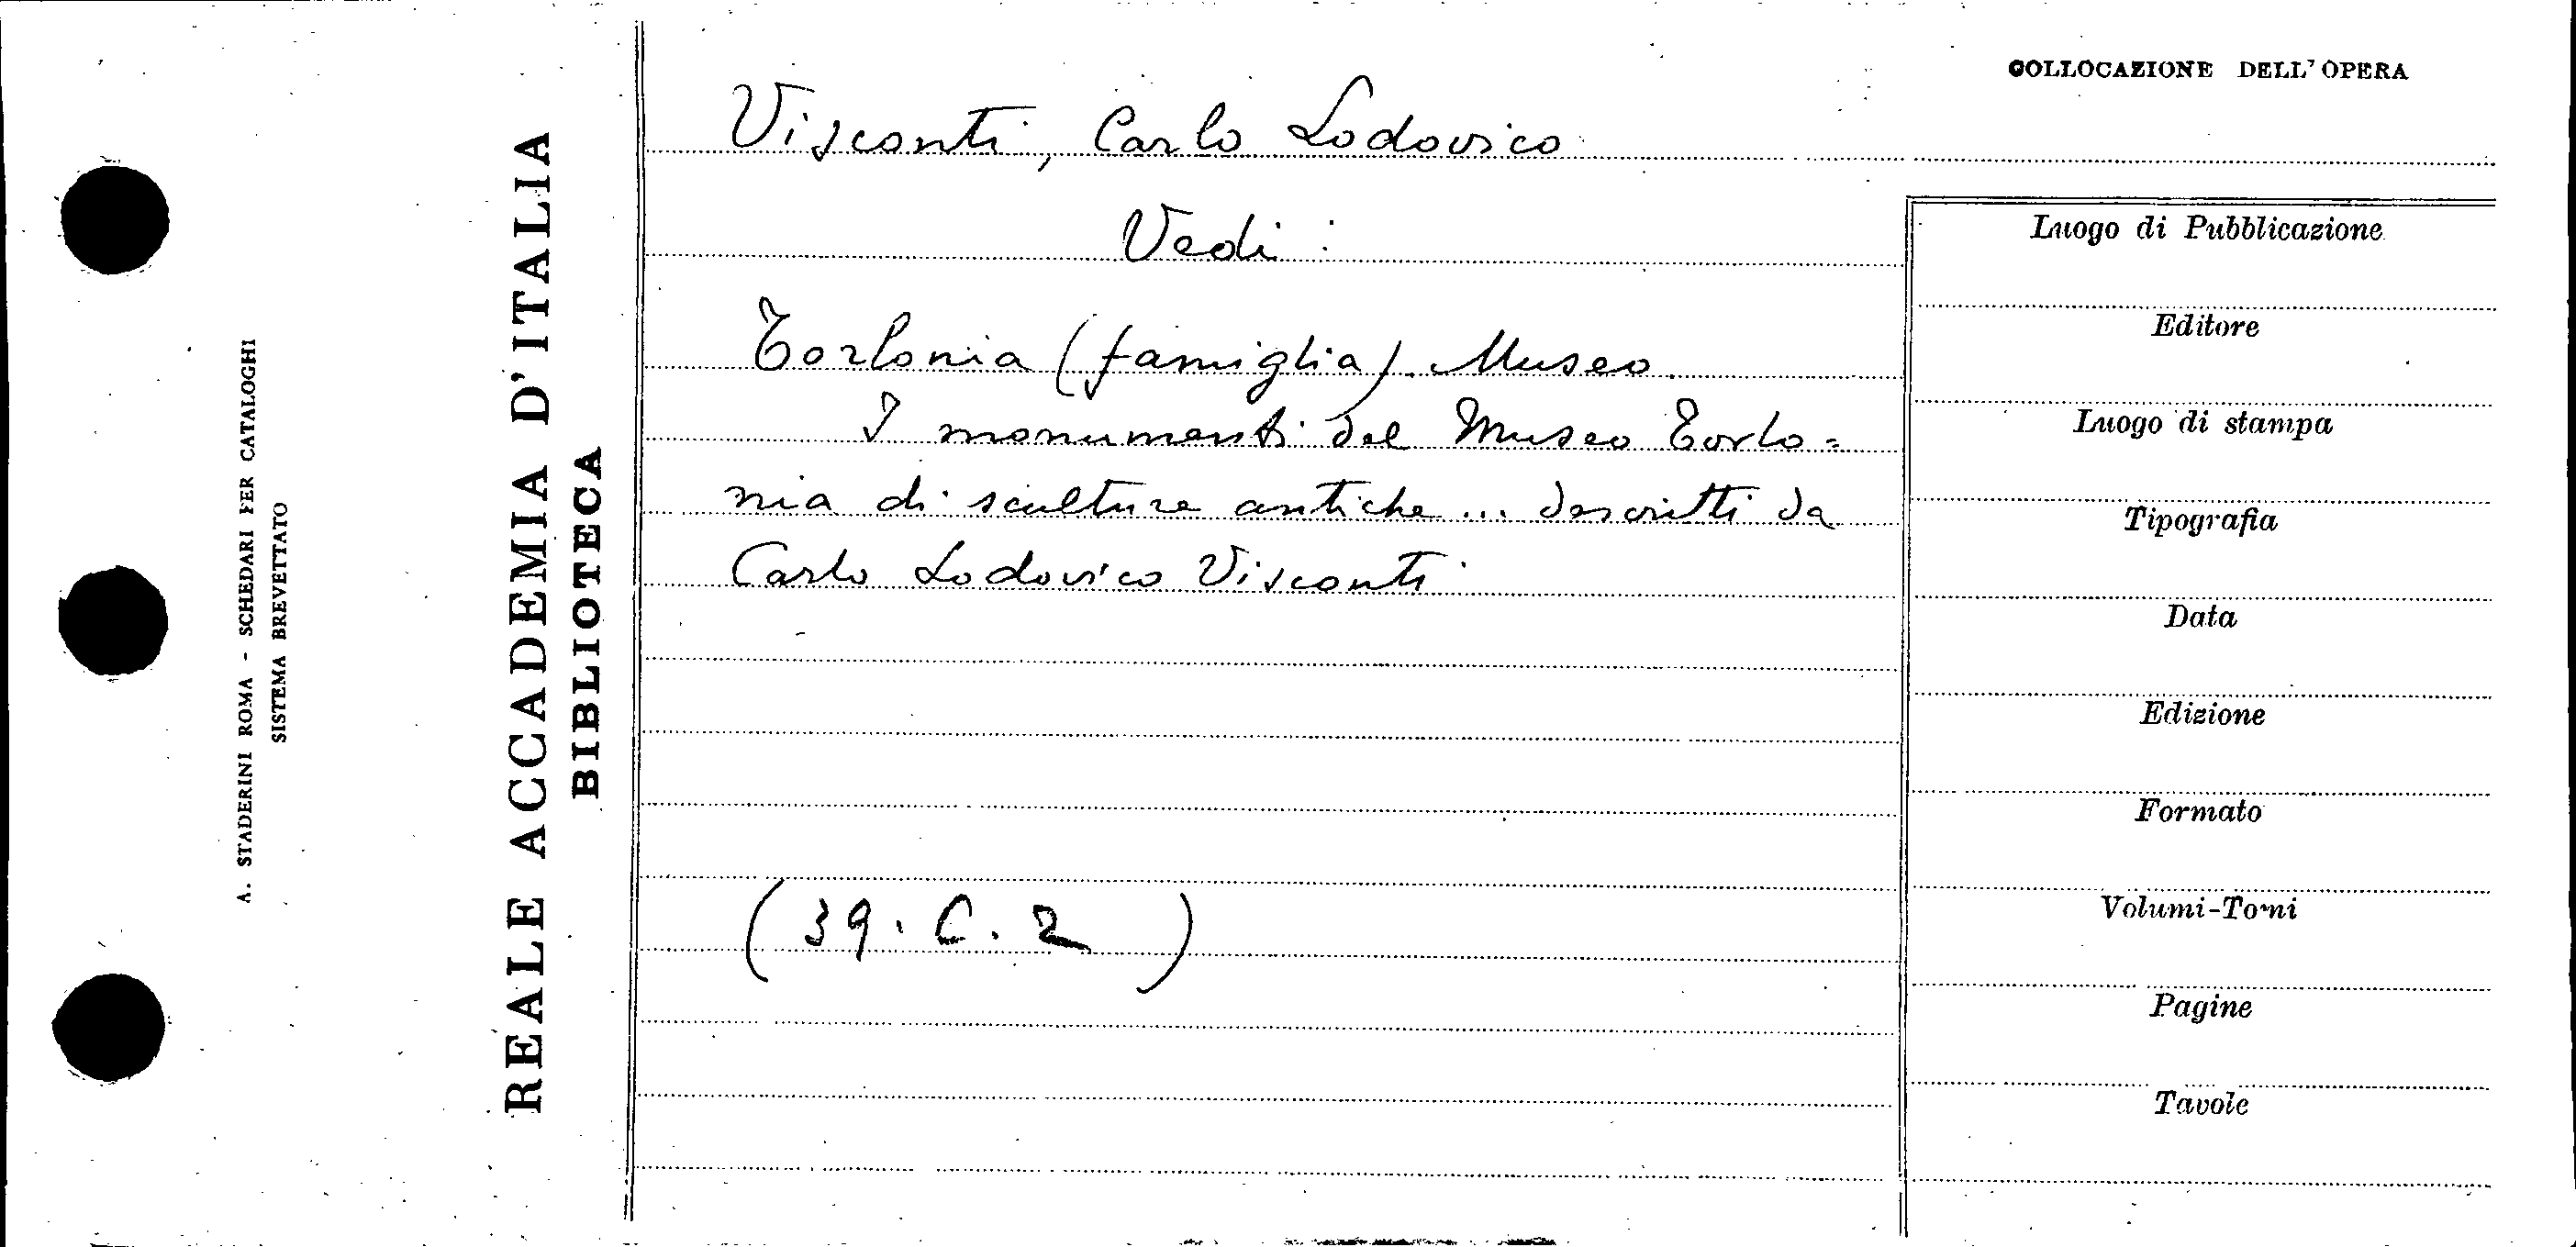 A. STADERINI ROMA - SCHEDARI PER CATALOGHI
SISTEMA BREVETTATO
REALE ACCADEMIA D'ITALIA
BIBLIOTECA
Visconti, Carlo Lodovico
Vedi:
Torlonia (famiglia). Museo.
I monumenti del Museo Torlo=
nia di sculture antiche... descritti da
Carlo Lodovico Visconti
(39.C.2)
COLLOCAZIONE DELL'OPERA
Luogo di Pubblicazione
Editore
Luogo di stampa
Tipografia
Data
Edizione
Formato
Volumi-Tomi
Pagine
Tavole